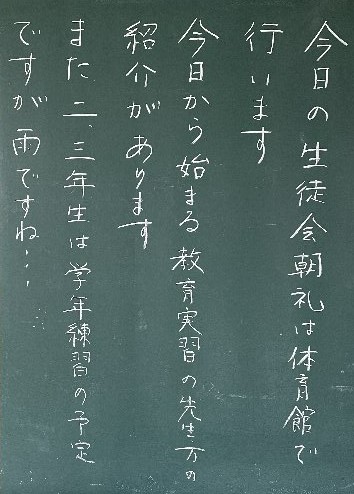 今日の生徒会朝礼は体育館で
行います
今日から始まる教育実習の先生方の
紹介があります
また二、三年生は学年練習の予定
ですが雨ですね...